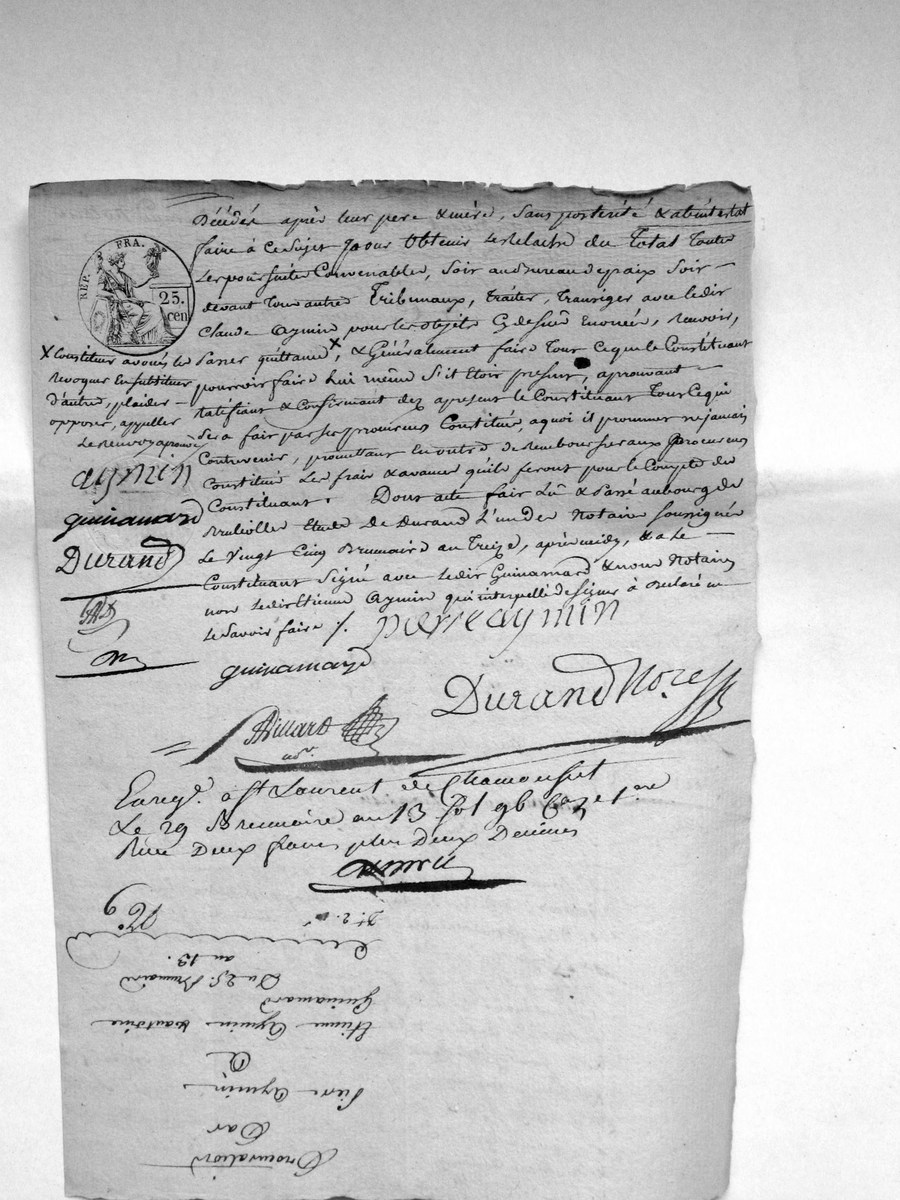 REP. FRA.
25.
cen
Décédés après leur pere & mère, sans postérité & abintestat
faire à ce sujet pour obtenir le relache du total toutes
les poursuites convenables, soit au bureau de paix soit
devant tous autres Tribunaux, traiter, transiger avec ledit
Claude Aymin pour les objets cy dessus énoncés, recevoir,
passer quittance X, & Généralement faire tout ce que le Constituant
pourroit faire lui même s'il étoit présent, aprouvant
ratifiant & confirmant dez apresent le Constituant tout ce qui
sera fait par ses procureurs Constitués, a quoi il promet ne jamais
contrevenir, promettant en outre de rembourser aux procureurs
Constitués les frais & avances qu'ils feront pour le compte du
Constituant. Dont acte fait lû & passé au bourg de
Brulliolles Etude de Durand l'un des Notaires soussignés
Le vingt cinq Brumaire an treize, après midy, & a le
Constituant signé avec ledit Guinamard & nous Notaires
non ledit Etienne Aymin qui interpellé de signer à déclaré ne
le savoir faire ./.
X Constituer avoués les
revoquer en substituer
d'autres, plaider
opposer, appeller
Le renvoy aprouvé
aymin
guinamard
Durand
pierre aymin
guinamard
Durand Nore
Enregé. a St Laurent de Chamousset
Le 29 Brumaire an 13 fol 96 Caze 1ere
Reçu Deux francs plus Deux Decimes
Procuration
Par
Pierre Aymin
A
Etienne Aymin & antoine
Guinamard
Du 25. Brumaire
an 13.
No. 9